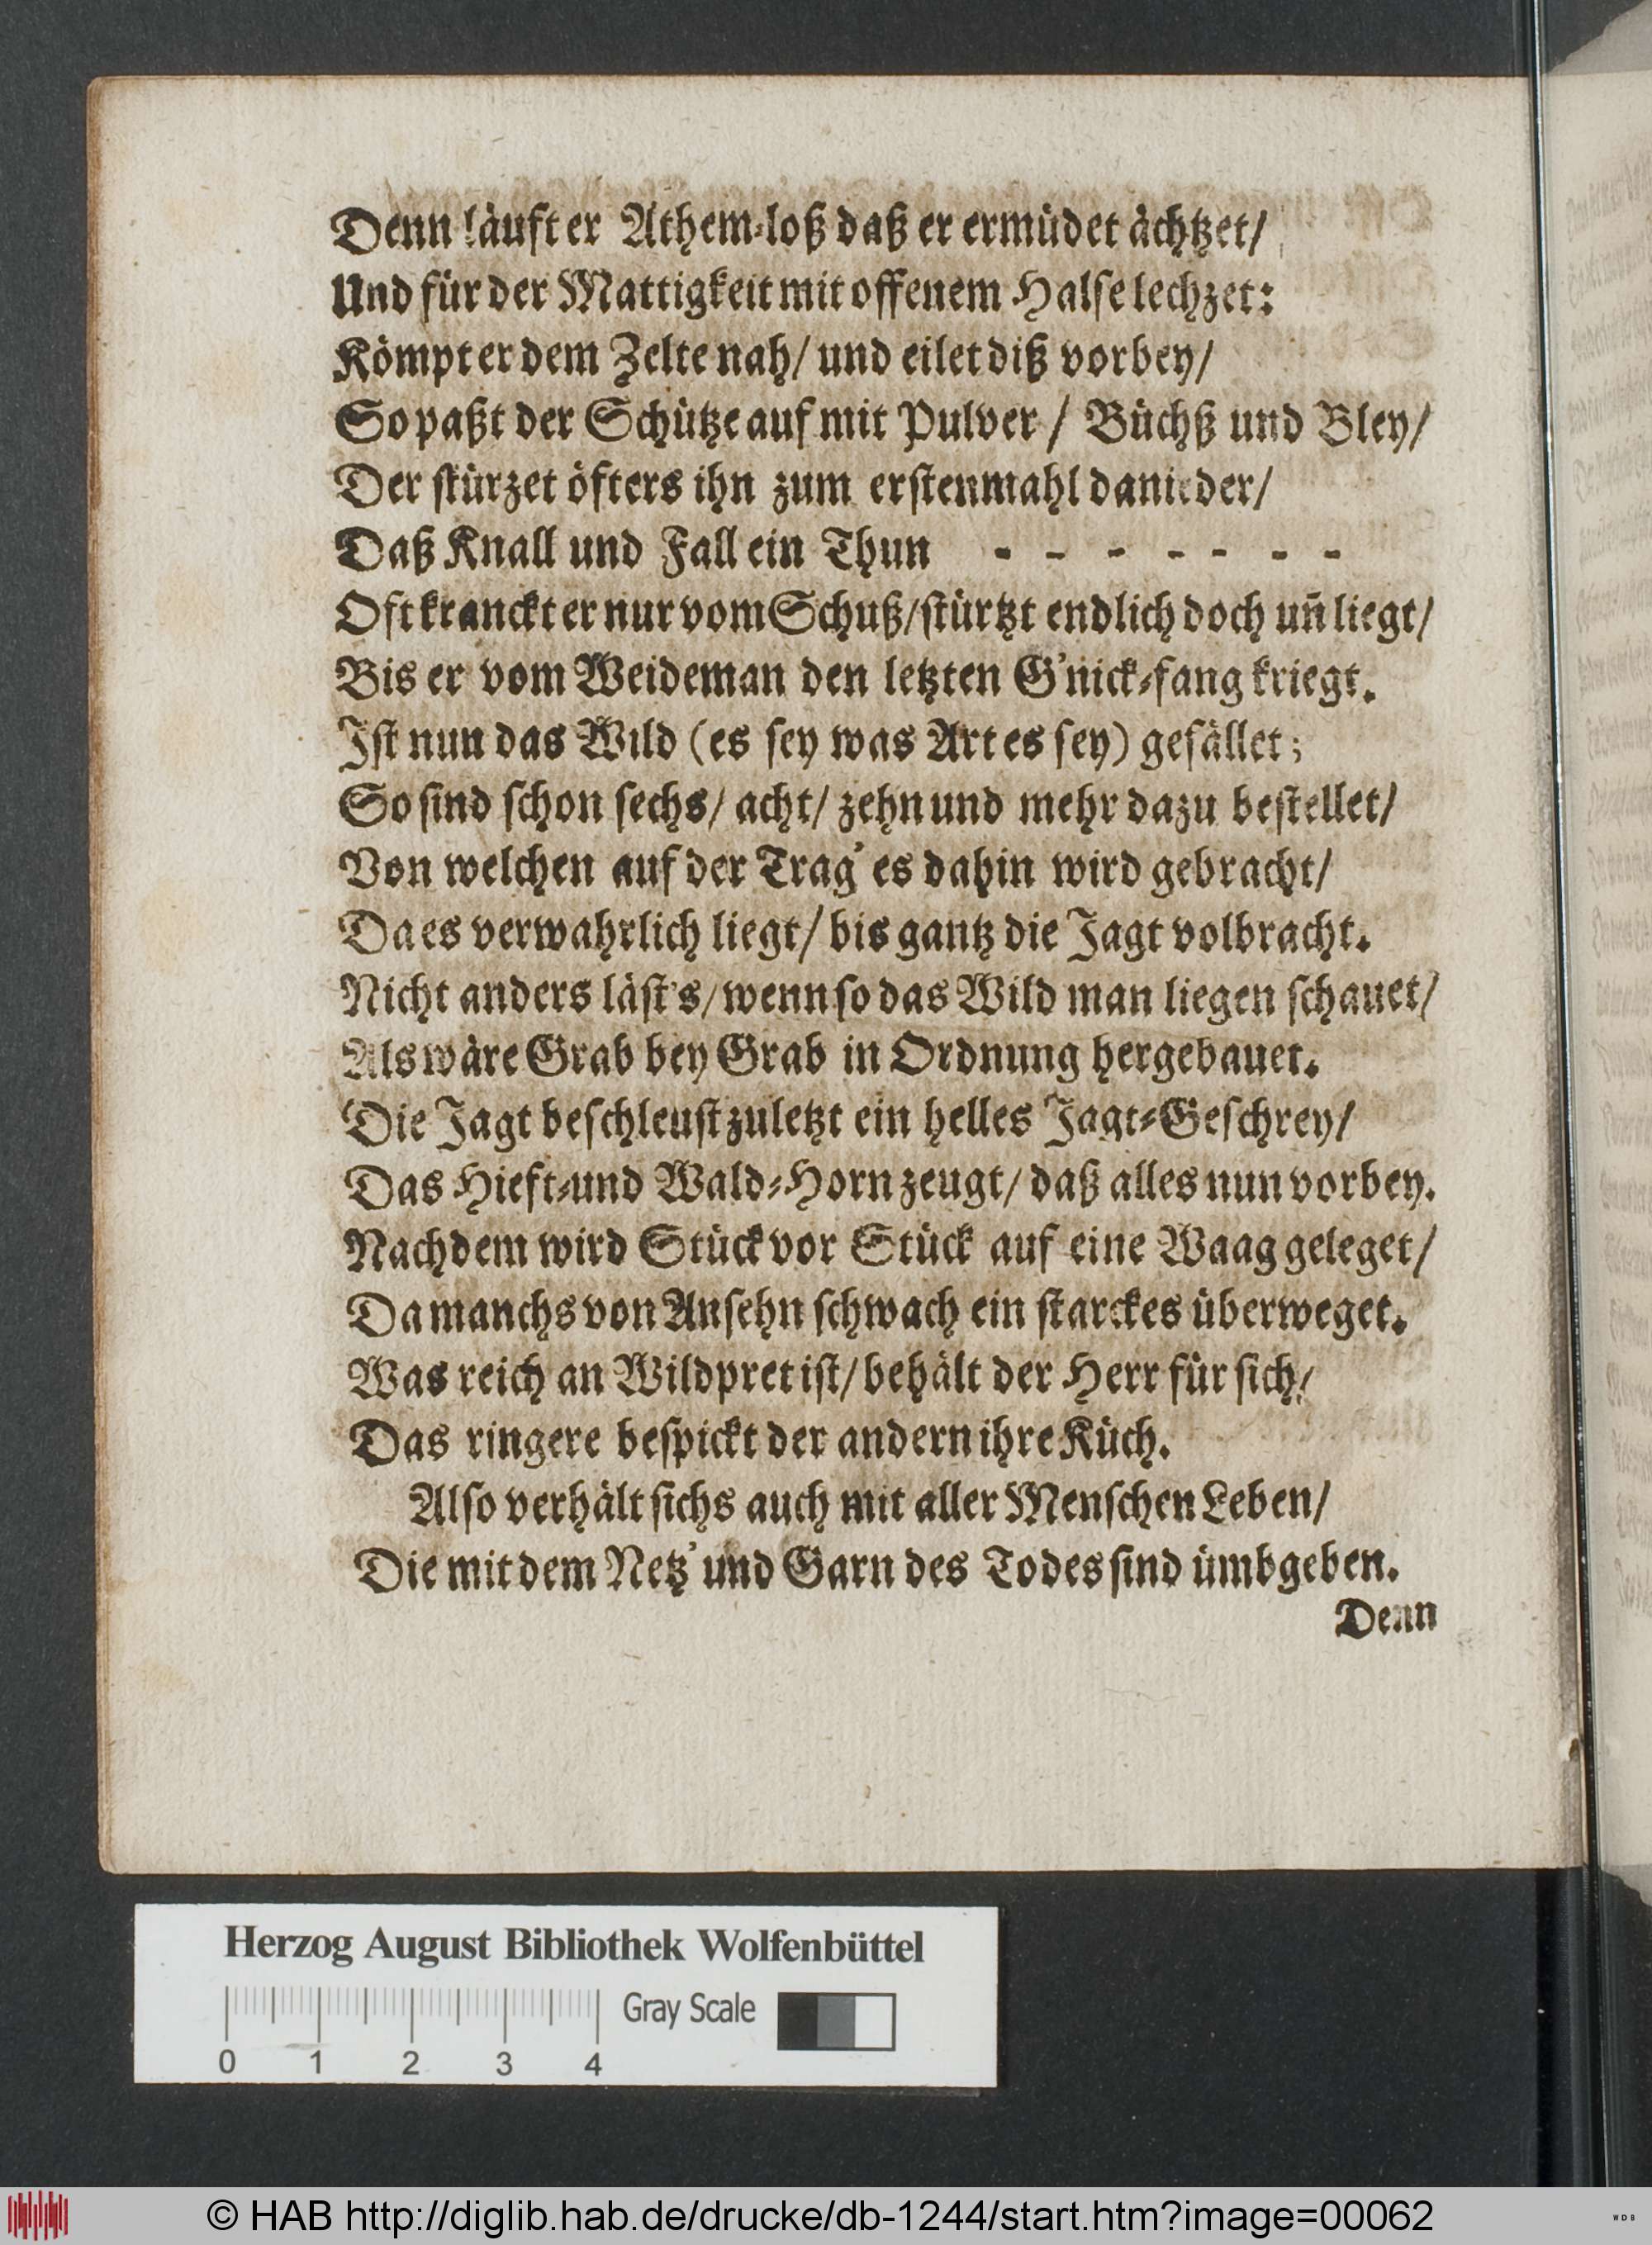 Denn läufft er Athem-loß daß er ermüdet ächtzet/
Und für der Mattigkeit mit offenem Halse lechzet:
Kömpt er dem Zelte nah/ und eilet diß vorbey/
So paßt der Schütze auf mit Pulver / Büchß und Bley/
Der stürzet öfters ihn zum erstenmahl danieder/
Daß Knall und Fall ein Thun - - - - - - -
Oft kranckt er nur vom Schuß/stürtzt endlich doch uñ liegt/
Bis er vom Weideman den letzten G'nick-fang kriegt.
Ist nun das Wild (es sey was Art es sey) gefället;
So sind schon sechs/ acht/ zehn und mehr dazu bestellet/
Von welchen auf der Trag' es dahin wird gebracht/
Da es verwahrlich liegt/ bis gantz die Jagt volbracht.
Nicht anders läst's/wenn so das Wild man liegen schauet/
Als wäre Grab bey Grab in Ordnung hergebauet.
Die Jagt beschleust zuletzt ein helles Jagt-Geschrey/
Das Hieft-und Wald-Horn zeugt/ daß alles nun vorbey.
Nachdem wird Stück vor Stück auf eine Waag geleget/
Da manchs von Ansehn schwach ein starckes überweget.
Was reich an Wildpret ist/ behält der Herr für sich/
Das ringere bespickt der andern ihre Küch.
Also verhält sichs auch mit aller Menschen Leben/
Die mit dem Netz' und Garn des Todes sind ümbgeben.
Denn
Herzog August Bibliothek Wolfenbüttel
Gray Scale
0 1 2 3 4
© HAB http://diglib.hab.de/drucke/db-1244/start.htm?image=00062
WDB